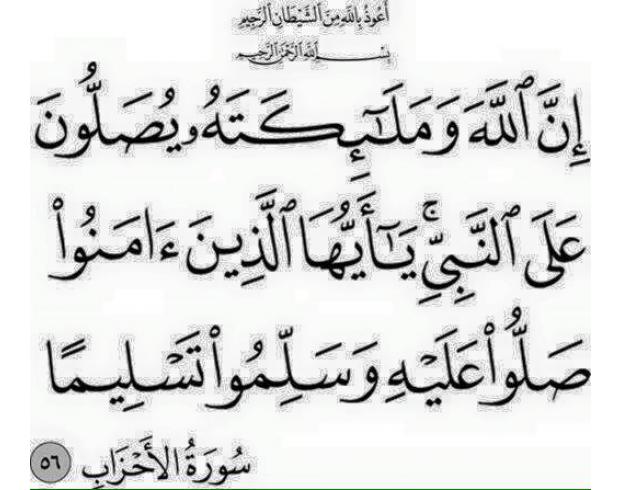 أعوذ بالله من الشيطان الرجيم
بسم الله الرحمن الرحيم
إِنَّ ٱللَّهَ وَمَلَـٰٓئِكَتَهُۥ يُصَلُّونَ
عَلَى ٱلنَّبِىِّ ۚ يَـٰٓأَيُّهَا ٱلَّذِينَ ءَامَنُوا۟
صَلُّوا۟ عَلَيْهِ وَسَلِّمُوا۟ تَسْلِيمًا
سُورَةُ الأَحْزَابِ ٥٦